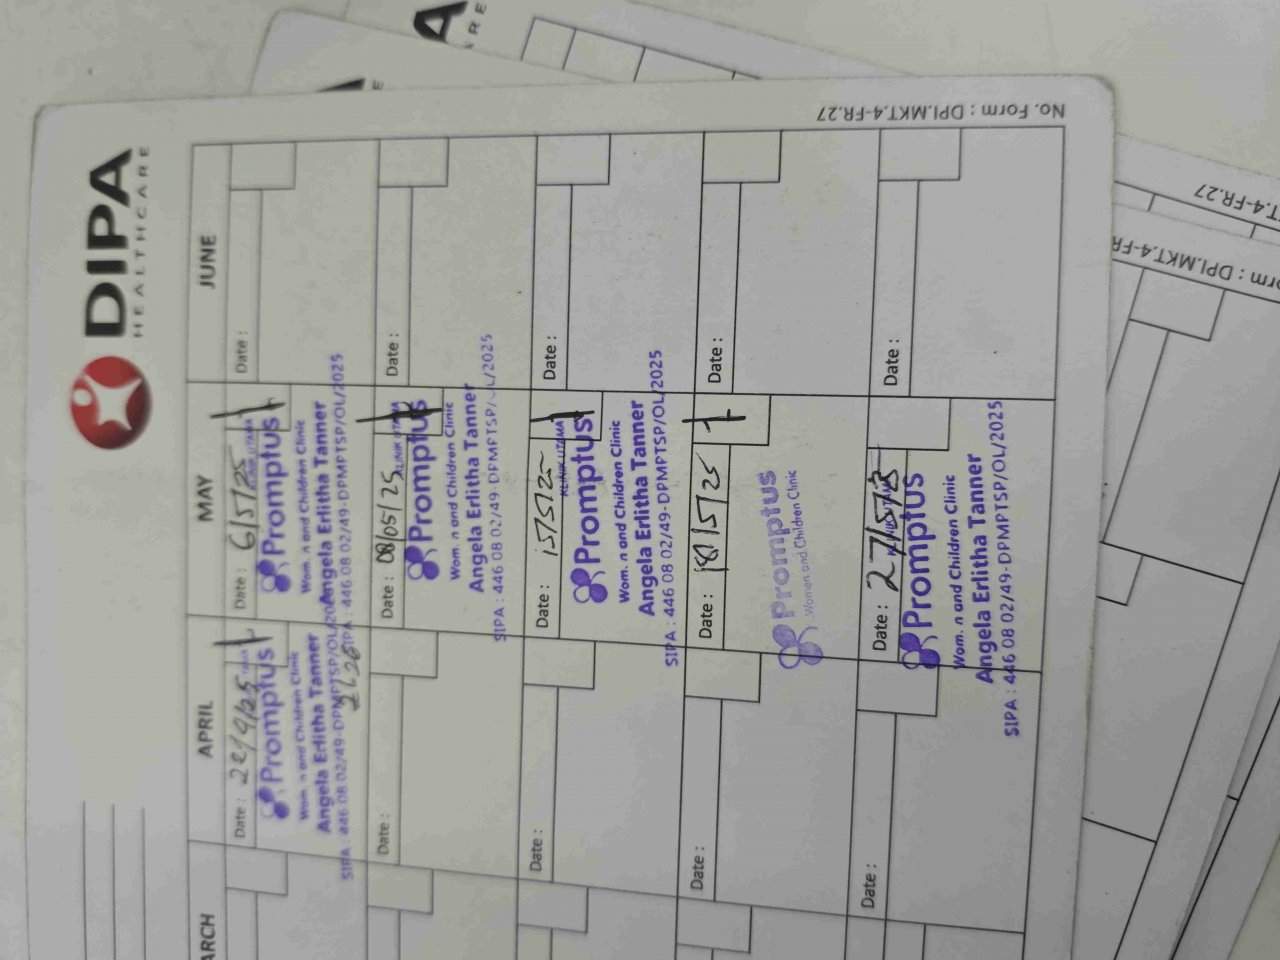 DIPA
HEALTHCARE
ARCH
APRIL
MAY
JUNE
Date : 22/4/25
Promptus
Wom. n and Children Clinic
Angela Erlitha Tanner
SIPA : 446 08 02/49-DPMPTSP/OL/20
Date : 6/5/25
KLINIK UTAMA
Promptus
Wom. n and Children Clinic
Angela Erlitha Tanner
SIPA : 446 08 02/49-DPMPTSP/OL/2025
Date :
Date :
Date : 08/05/25
KLINIK UTAMA
Promptus
Wom. n and Children Clinic
Angela Erlitha Tanner
SIPA : 446 08 02/49-DPMPTSP/OL/2025
Date :
Date :
Date : 15/5/25
KLINIK UTAMA
Promptus
Wom. n and Children Clinic
Angela Erlitha Tanner
SIPA : 446 08 02/49-DPMPTSP/OL/2025
Date :
Date :
Date :
Promptus
Women and Children Clinic
Date :
Date :
Date : 27/5/
Promptus
Wom. n and Children Clinic
Angela Erlitha Tanner
SIPA : 446 08 02/49-DPMPTSP/OL/2025
Date :
No. Form : DPI.MKT.4-FR.27
A
RE
T.4-FR.27
Form : DPI.MKT.4-FR